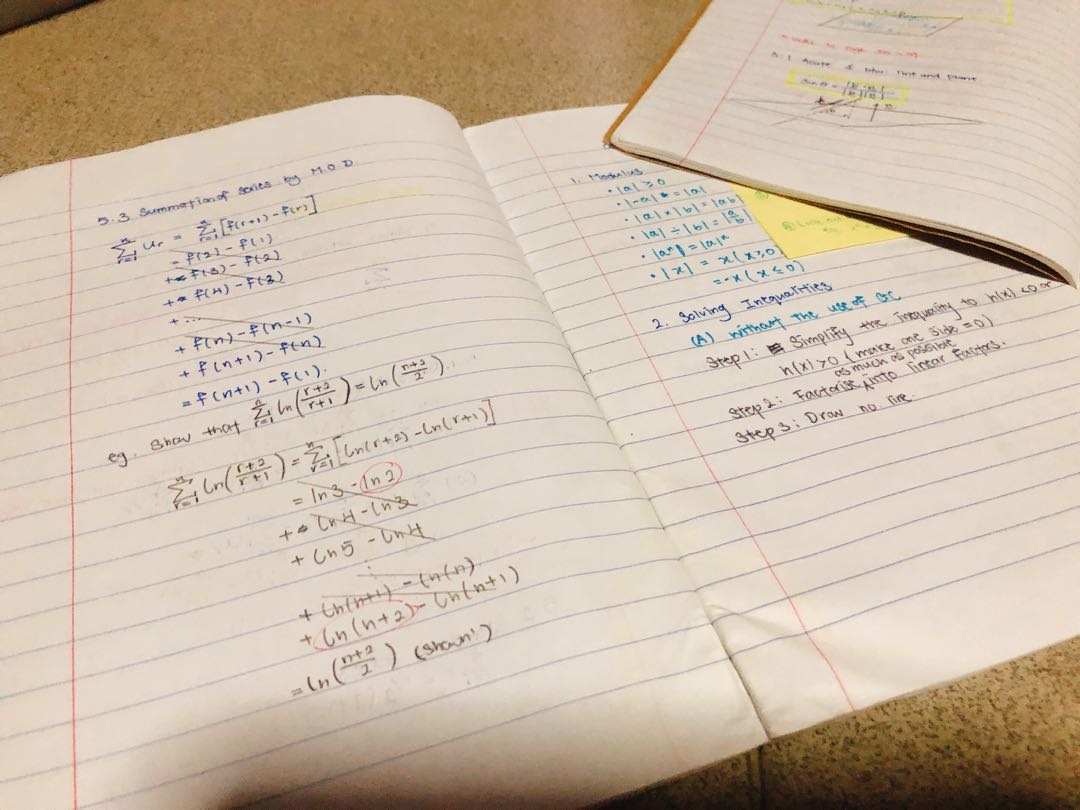 5.3 Summation of series by M.O.D.
n∑r=1 Ur = n∑r=1 [f(r+1) - f(r)]
= f(2) - f(1)
+ f(3) - f(2)
+ f(4) - f(3)
+ ...
+ f(n) - f(n-1)
+ f(n+1) - f(n)
= f(n+1) - f(1).
eg. Show that n∑r=1 ln(r+2/r+1) = ln(n+2/2).
n∑r=1 ln(r+2/r+1) = n∑r=1 [ln(r+2) - ln(r+1)]
= ln3 - ln2
+ ln4 - ln3
+ ln5 - ln4
⋮
+ ln(n+1) - ln(n)
+ ln(n+2) - ln(n+1)
= ln(n+2/2) (shown)
1. Modulus
• |a| ≥ 0
• |-a| = |a|
• |a| x |b| = |ab|
• |a| ÷ |b| = |a/b|
• |aⁿ| = |a|ⁿ
• |x| = x (x ≥ 0)
= -x (x ≤ 0)
2. Solving Inequalities
(A) without the use of GC
Step 1: Simplify the inequality to h(x) < 0 or
h(x) > 0 (make one side = 0)
as much as possible
Step 2: Factorise into linear factors.
Step 3: Draw no line.
3.1 Acute line and plane
sin θ =